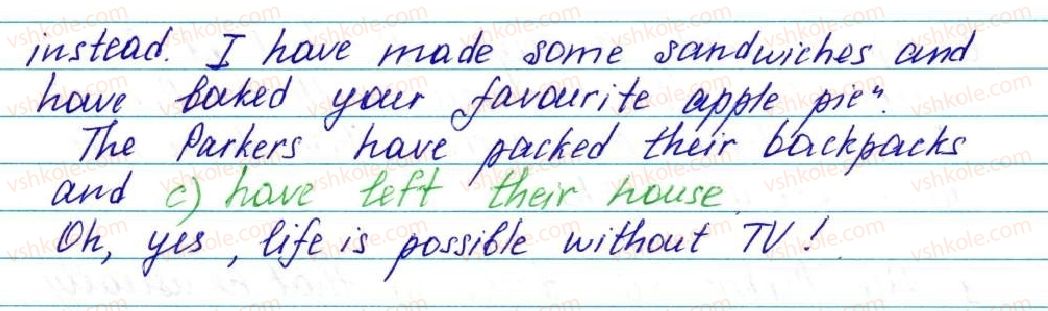 instead. I have made some sandwiches and
have baked your favourite apple pie".
The Parkers have packed their backpacks
and c) have left their house.
Oh, yes, life is possible without TV!